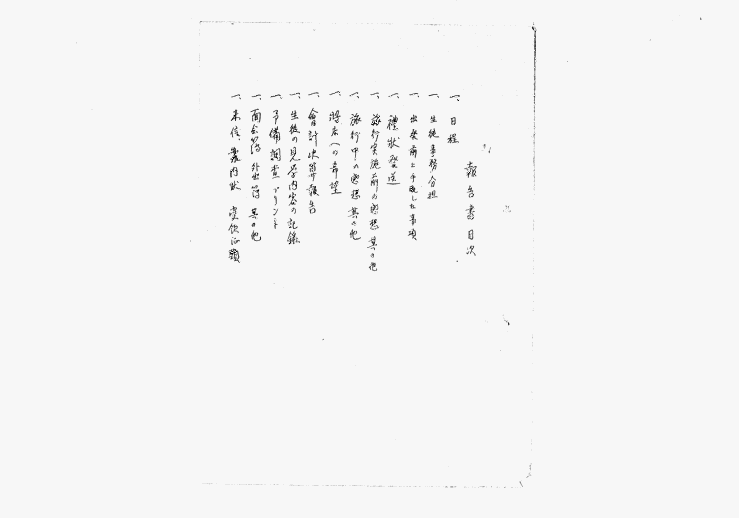 報告書目次
一、日程
一、生徒事務分担
一、出発前に手配した事項
一、禮狀発送
一、旅行実施前の感想其の他
一、旅行中の感想其の他
一、將来への希望
一、會計決算報告
一、生徒の見学内容の記録
一、予備調査プリント
一、面会簿 外出簿 其の他
一、来信、案内狀 受領証類